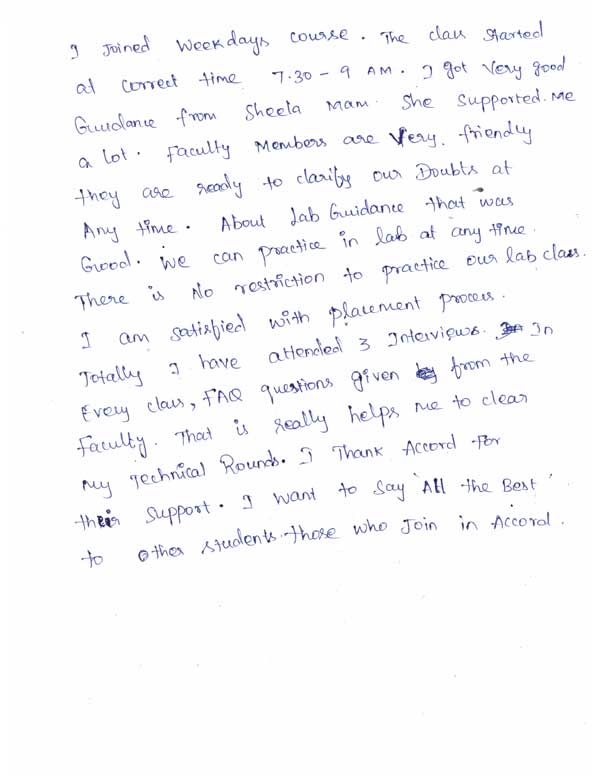 I Joined Weekdays course. The class started
at correct time 7.30 - 9 AM. I got very good
Guidance from Sheela Mam. She supported me
a lot. Faculty Members are very friendly
they are ready to clarify our Doubts at
Any time. About Lab Guidance that was
Good. We can practice in lab at any time.
There is No restriction to practice our lab class.
I am satisfied with placement process.
Totally I have attended 3 Interviews. In
Every class, FAQ questions given from the
Faculty. That is really helps me to clear
My Technical Rounds. I Thank Accord for
their support. I want to say 'All the Best'
to other students those who Join in Accord.